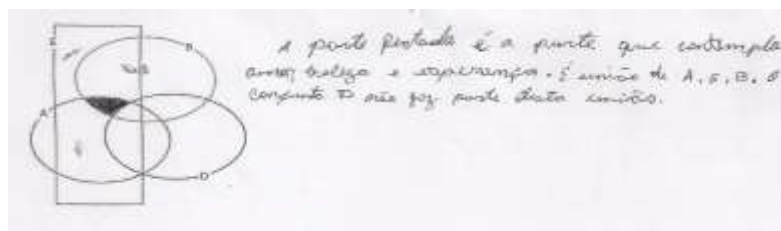 A parte pintada é a parte que contempla
amor, beleza e esperança. É união de A, E, B. O
conjunto D não faz parte desta união.
E
B
A
D